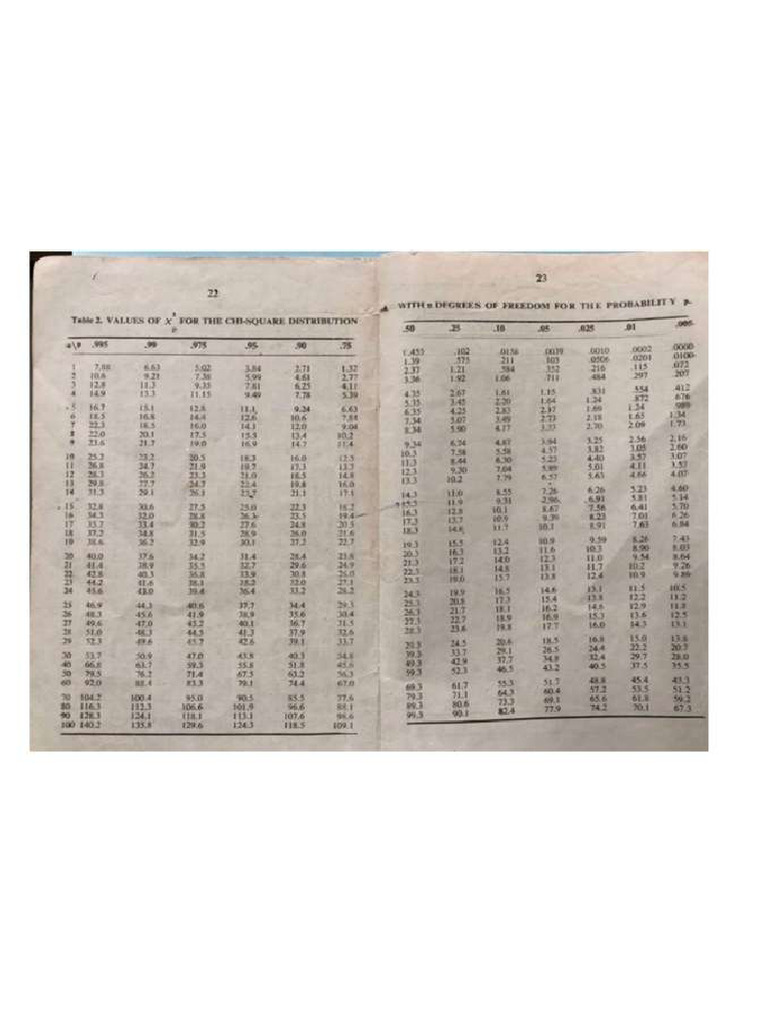 22
Table 2. VALUES OF X² FOR THE CHI-SQUARE DISTRIBUTION
p
n\p .995 .99 .975 .95 .90 .75
1 7.88 6.63 5.02 3.84 2.71 1.32
2 10.6 9.21 7.38 5.99 4.61 2.77
3 12.8 11.3 9.35 7.81 6.25 4.11
4 14.9 13.3 11.15 9.49 7.78 5.39
5 16.7 15.1 12.8 11.1 9.24 6.63
6 18.5 16.8 14.4 12.6 10.6 7.84
7 22.3 18.5 16.0 14.1 12.0 9.04
8 22.0 20.1 17.5 15.5 13.4 10.2
9 23.6 21.7 19.0 16.9 14.7 11.4
10 25.2 23.2 20.5 18.3 16.0 12.5
11 26.8 24.7 21.9 19.7 17.3 13.7
12 28.3 26.2 23.3 21.0 18.5 14.8
13 29.8 27.7 24.7 22.4 19.8 16.0
14 31.3 29.1 26.1 23.7 21.1 17.1
15 32.8 30.6 27.5 25.0 22.3 18.2
16 34.3 32.0 28.8 26.3 23.5 19.4
17 35.7 33.4 30.2 27.6 24.8 20.5
18 37.2 34.8 31.5 28.9 26.0 21.6
19 38.6 36.2 32.9 30.1 27.2 22.7
20 40.0 37.6 34.2 31.4 28.4 23.8
21 41.4 38.9 35.5 32.7 29.6 24.9
22 42.8 40.3 36.8 33.9 30.8 26.0
23 44.2 41.6 38.1 35.2 32.0 27.1
24 45.6 43.0 39.4 36.4 33.2 28.2
25 46.9 44.3 40.6 37.7 34.4 29.3
26 48.3 45.6 41.9 38.9 35.6 30.4
27 49.6 47.0 43.2 40.1 36.7 31.5
28 51.0 48.3 44.5 41.3 37.9 32.6
29 52.3 49.6 45.7 42.6 39.1 33.7
30 53.7 50.9 47.0 43.8 40.3 34.8
40 66.8 63.7 59.3 55.8 51.8 45.6
50 79.5 76.2 71.4 67.5 63.2 56.3
60 92.0 88.4 83.3 79.1 74.4 67.0
70 104.2 100.4 95.0 90.5 85.5 77.6
80 116.3 112.3 106.6 101.9 96.6 88.1
90 128.3 124.1 118.1 113.1 107.6 98.6
100 140.2 135.8 129.6 124.3 118.5 109.1
23
WITH n DEGREES OF FREEDOM FOR THE PROBABILITY P.
.50 .25 .10 .05 .025 .01 .005
1.455 .102 .0158 .0039 .0010 .0002 .0000
1.39 .575 .211 .103 .0506 .0201 .0100
2.37 1.21 .584 .352 .216 .115 .072
3.36 1.92 1.06 .711 .484 .297 .207
4.35 2.67 1.61 1.15 .831 .554 .412
5.35 3.45 2.20 1.64 1.24 .872 .676
6.35 4.25 2.83 2.17 1.69 1.24 .989
7.34 5.07 3.49 2.73 2.18 1.65 1.34
8.34 5.90 4.17 3.33 2.70 2.09 1.73
9.34 6.74 4.87 3.94 3.25 2.56 2.16
10.3 7.58 5.58 4.57 3.82 3.05 2.60
11.3 8.44 6.30 5.23 4.40 3.57 3.07
12.3 9.30 7.04 5.89 5.01 4.11 3.57
13.3 10.2 7.79 6.57 5.63 4.66 4.07
14.3 11.0 8.55 7.26 6.26 5.23 4.60
15.3 11.9 9.31 7.96 6.91 5.81 5.14
16.3 12.8 10.1 8.67 7.56 6.41 5.70
17.3 13.7 10.9 9.39 8.23 7.01 6.26
18.3 14.6 11.7 10.1 8.91 7.63 6.84
19.3 15.5 12.4 10.9 9.59 8.26 7.43
20.3 16.3 13.2 11.6 10.3 8.90 8.03
21.3 17.2 14.0 12.3 11.0 9.54 8.64
22.3 18.1 14.8 13.1 11.7 10.2 9.26
23.3 19.0 15.7 13.8 12.4 10.9 9.89
24.3 19.9 16.5 14.6 13.1 11.5 10.5
25.3 20.8 17.3 15.4 13.8 12.2 11.2
26.3 21.7 18.1 16.2 14.6 12.9 11.8
27.3 22.7 18.9 16.9 15.3 13.6 12.5
28.3 23.6 19.8 17.7 16.0 14.3 13.1
29.3 24.5 20.6 18.5 16.8 15.0 13.8
39.3 33.7 29.1 26.5 24.4 22.2 20.7
49.3 42.9 37.7 34.8 32.4 29.7 28.0
59.3 52.3 46.5 43.2 40.5 37.5 35.5
69.3 61.7 55.3 51.7 48.8 45.4 43.3
79.3 71.1 64.3 60.4 57.2 53.5 51.2
89.3 80.6 73.3 69.1 65.6 61.8 59.2
99.3 90.1 82.4 77.9 74.2 70.1 67.3